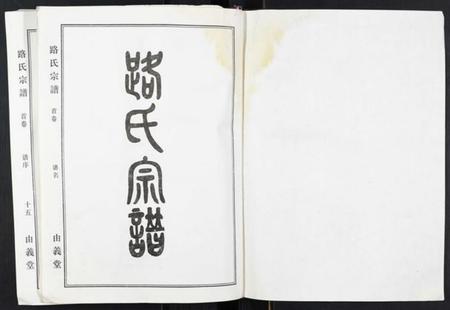 路氏宗譜
路氏宗譜 首卷 谱名 由義堂
路氏宗譜 首卷 谱序 十五 由義堂